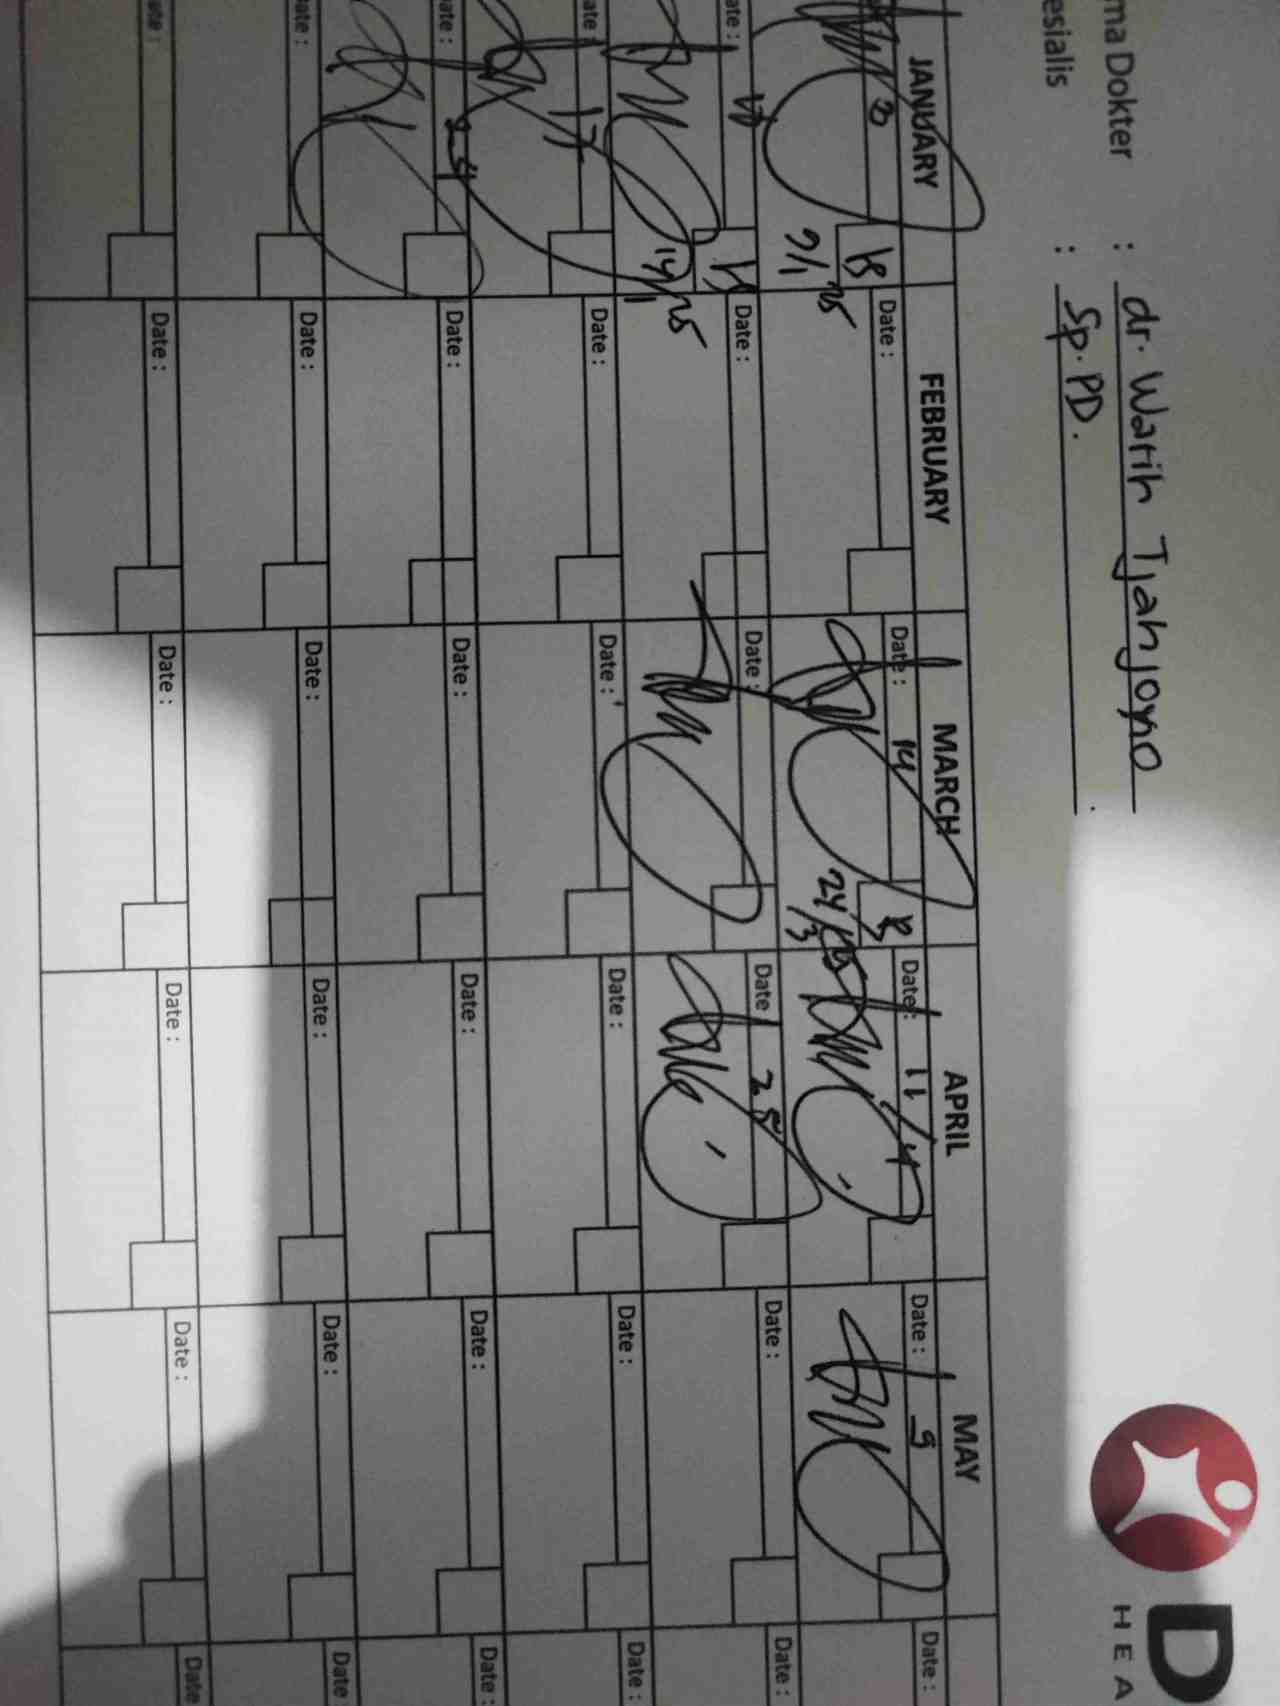 ma Dokter : dr. Warih Tjahjono
esialis : Sp. PD.
D
HEA
JANUARY FEBRUARY MARCH APRIL MAY
3 Date : Date : 14 Date : 11/4 Date : 9 Date :
9/1 25 24/3
ate : Date : Date : Date 25 Date : Date :
14/1 25
ate : 17 Date : Date : Date : Date : Date :
ate : 24 Date : Date : Date : Date : Date :
ate : Date : Date : Date : Date : Date
ate : Date : Date : Date : Date : Date